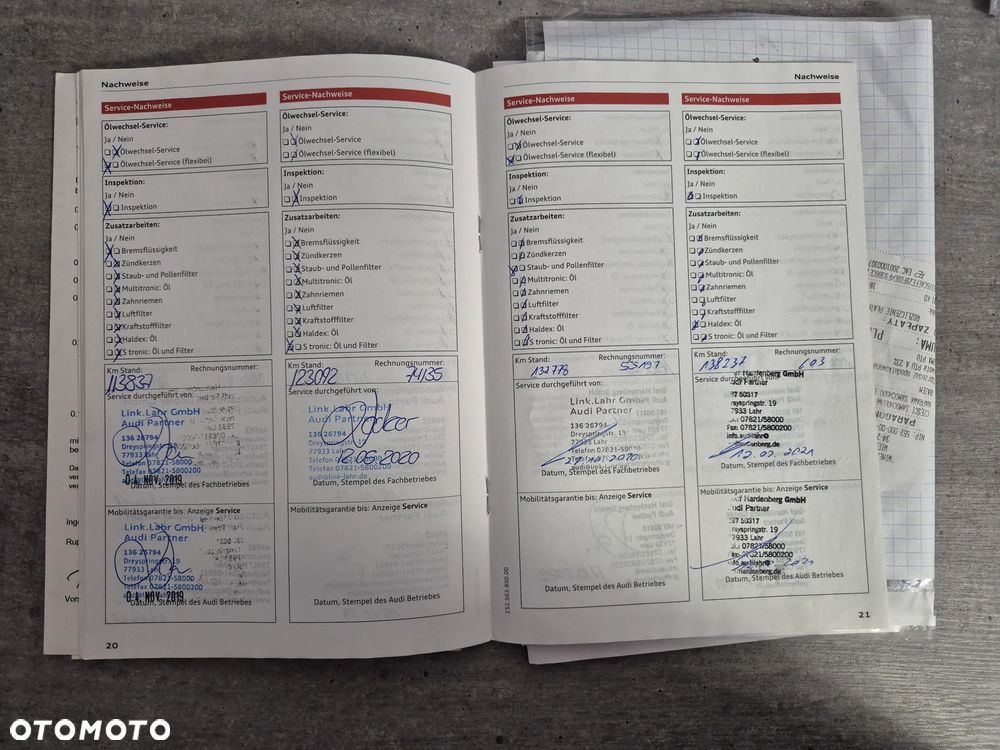 Nachweise
Service-Nachweise
Ölwechsel-Service:
Ja / Nein
Ölwechsel-Service
Ölwechsel-Service (flexibel)
Inspektion:
Ja / Nein
Inspektion
Zusatzarbeiten:
Ja / Nein
Bremsflüssigkeit
Zündkerzen
Staub- und Pollenfilter
Multitronic: Öl
Zahnriemen
Luftfilter
Kraftstofffilter
Haldex: Öl
S tronic: Öl und Filter
Km Stand: Rechnungsnummer:
113837
Service durchgeführt von:
Link.Lahr GmbH
Audi Partner
136 26794
Dreyspringstr. 19
77933 Lahr
Telefon 07821-5800
Telefax 07821-5800200
04. NOV. 2019
Datum, Stempel des Fachbetriebes
Mobilitätsgarantie bis: Anzeige Service
Link.Lahr GmbH
Audi Partner
136 26794
Dreyspringstr. 19
77933 Lahr
Telefon 07821-5800
Telefax 07821-5800200
04. NOV. 2019
Datum, Stempel des Audi Betriebes
20
Service-Nachweise
Ölwechsel-Service:
Ja / Nein
Ölwechsel-Service
Ölwechsel-Service (flexibel)
Inspektion:
Ja / Nein
Inspektion
Zusatzarbeiten:
Ja / Nein
Bremsflüssigkeit
Zündkerzen
Staub- und Pollenfilter
Multitronic: Öl
Zahnriemen
Luftfilter
Kraftstofffilter
Haldex: Öl
S tronic: Öl und Filter
Km Stand: Rechnungsnummer:
123092 74135
Service durchgeführt von:
Link.Lahr GmbH
Audi Partner
136 26794
Dreyspringstr. 19
77933 Lahr
12.05.2020
Telefon 07821-5800
Telefax 07821-5800200
audi@link-lahr.de
Datum, Stempel des Fachbetriebes
Mobilitätsgarantie bis: Anzeige Service
Datum, Stempel des Audi Betriebes
Service-Nachweise
Ölwechsel-Service:
Ja / Nein
Ölwechsel-Service
Ölwechsel-Service (flexibel)
Inspektion:
Ja / Nein
Inspektion
Zusatzarbeiten:
Ja / Nein
Bremsflüssigkeit
Zündkerzen
Staub- und Pollenfilter
Multitronic: Öl
Zahnriemen
Luftfilter
Kraftstofffilter
Haldex: Öl
S tronic: Öl und Filter
Km Stand: Rechnungsnummer:
132778 55151
Service durchgeführt von:
Link.Lahr GmbH
Audi Partner
136 26794
Dreyspringstr. 19
77933 Lahr
Telefon 07821-5800
Telefax 07821-5800200
Datum, Stempel des Fachbetriebes
Mobilitätsgarantie bis: Anzeige Service
Datum, Stempel des Audi Betriebes
152.563.850.00
Nachweise
Service-Nachweise
Ölwechsel-Service:
Ja / Nein
Ölwechsel-Service
Ölwechsel-Service (flexibel)
Inspektion:
Ja / Nein
Inspektion
Zusatzarbeiten:
Ja / Nein
Bremsflüssigkeit
Zündkerzen
Staub- und Pollenfilter
Multitronic: Öl
Zahnriemen
Luftfilter
Kraftstofffilter
Haldex: Öl
S tronic: Öl und Filter
Km Stand: Rechnungsnummer:
138237 603
Service durchgeführt von:
Hardenberg GmbH
77933 Lahr
07821/58000
07821/5800200
12.02.2021
Datum, Stempel des Fachbetriebes
Mobilitätsgarantie bis: Anzeige Service
Hardenberg GmbH
77933 Lahr
07821/58000
Datum, Stempel des Audi Betriebes
21
PARAGON
OTOMOTO